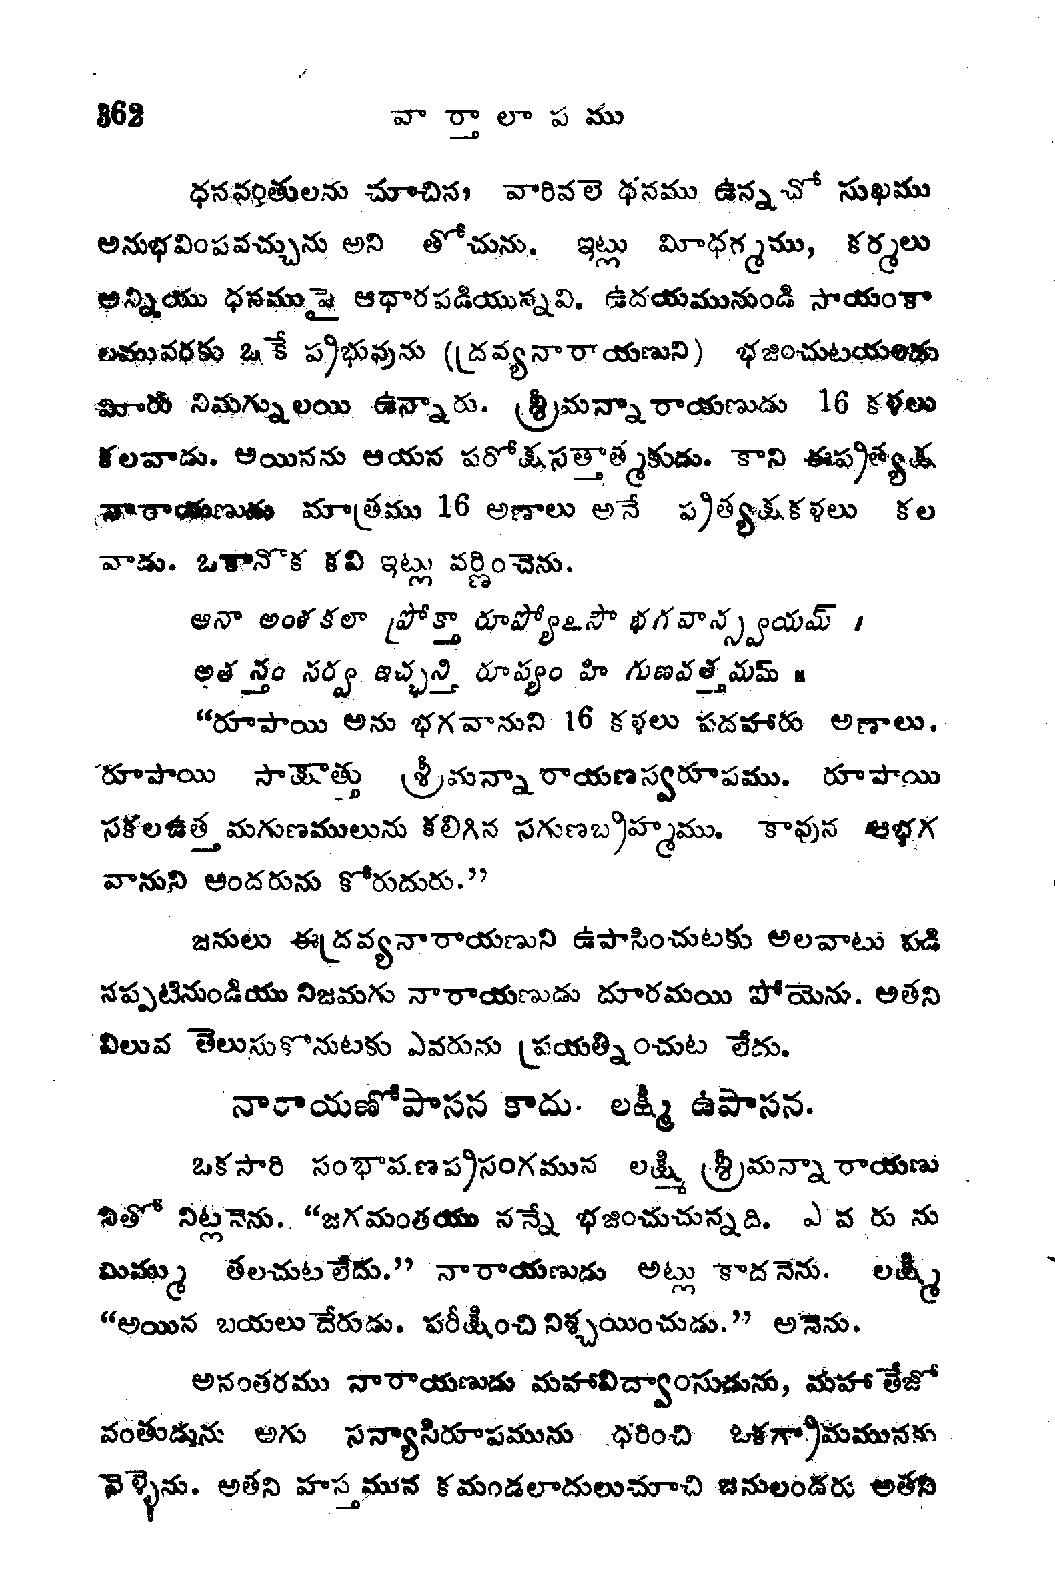 362 వా ర్తా లా ప ము
ధనవర్తితులను చూచిన, వారివలె ధనము ఉన్నచో సుఖము
అనుభవింపవచ్చును అని తోచును. ఇట్లు మీధర్మము, కర్మలు
అన్నియు ధనముపై ఆధారపడియున్నవి. ఉదయమునుండి సాయంకా
లమువరకు ఒకే ప్రభువును (ద్రవ్యనారాయణుని) భజించుటయందు
మీరు నిమగ్నులయి ఉన్నారు. శ్రీమన్నారాయణుడు 16 కళలు
కలవాడు. అయినను ఆయన పరోక్షసత్తాత్మకుడు. కాని ఈప్రత్యక్ష
నారాయణుడు మాత్రము 16 అణాలు అనే ప్రత్యక్షకళలు కల
వాడు. ఒకానొక కవి ఇట్లు వర్ణించెను.
ఆనా అంశకలా ప్రోక్తా రూప్యోఽసౌ భగవాన్స్వయమ్ ।
అత స్తం సర్వ ఇచ్ఛన్తి రూప్యం హి గుణవత్తమమ్ ॥
“రూపాయి అను భగవానుని 16 కళలు పదహారు అణాలు.
రూపాయి సాక్షాత్తు శ్రీమన్నారాయణస్వరూపము. రూపాయి
సకలఉత్తమగుణములును కలిగిన సగుణబ్రహ్మము. కావున ఆభగ
వానుని అందరును కోరుదురు.”
జనులు ఈద్రవ్యనారాయణుని ఉపాసించుటకు అలవాటు పడి
నప్పటినుండియు నిజమగు నారాయణుడు దూరమయి పోయెను. అతని
విలువ తెలుసుకొనుటకు ఎవరును ప్రయత్నించుట లేదు.
నారాయణోపాసన కాదు. లక్ష్మీ ఉపాసన.
ఒకసారి సంభాషణప్రసంగమున లక్ష్మి శ్రీమన్నారాయణు
నితో నిట్లనెను. “జగమంతయు నన్నే భజించుచున్నది. ఎ వ రు ను
మిమ్ము తలచుటలేదు.” నారాయణుడు అట్లు కాదనెను. లక్ష్మీ
“అయిన బయలుదేరుడు. పరీక్షించి నిశ్చయించుడు.” అనెను.
అనంతరము నారాయణుడు మహావిద్వాంసుడును, మహాతేజో
వంతుడును అగు సన్యాసిరూపమును ధరించి ఒకగ్రామమునకు
వెళ్ళెను. అతని హస్తమున కమండలాదులుచూచి జనులందరు అతని